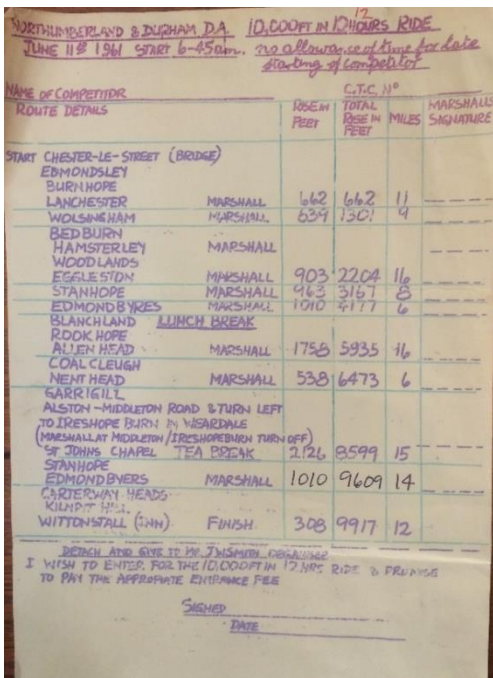 NORTHUMBERLAND & DURHAM D.A. 10,000FT IN 12 HOURS RIDE
JUNE 11th 1961 START 6-45am. no allowance of time for late
starting of competitor
NAME OF COMPETITOR C.T.C. No
ROUTE DETAILS RISE IN FEET TOTAL RISE IN FEET MILES MARSHALLS SIGNATURE
START CHESTER-LE-STREET (BRIDGE)
EDMONDSLEY
BURNHOPE
LANCHESTER MARSHALL 662 662 11
WOLSINGHAM MARSHALL 639 1301 9
BEDBURN
HAMSTERLEY MARSHALL
WOODLANDS
EGGLESTON MARSHALL 903 2204 16
STANHOPE MARSHALL 963 3167 8
EDMONDBYRES MARSHALL 1010 4177 6
BLANCHLAND LUNCH BREAK
ROOKHOPE
ALLEN HEAD MARSHALL 1758 5935 16
COAL CLEUGH
NENT HEAD MARSHALL 538 6473 6
GARRIGILL
ALSTON - MIDDLETON ROAD & TURN LEFT
TO IRESHOPE BURN IN WEARDALE
(MARSHALL AT MIDDLETON / IRESHOPEBURN TURN OFF)
ST JOHNS CHAPEL TEA BREAK 2126 8599 15
STANHOPE
EDMONDBYERS MARSHALL 1010 9609 14
CARTERWAY HEADS
KILNPIT HILL
WITTONSTALL (INN) FINISH 308 9917 12
DETACH AND GIVE TO MR. J.W.SMITH
I WISH TO ENTER FOR THE 10,000FT IN 12 HRS RIDE & PROMISE
TO PAY THE APPROPIATE ENTRANCE FEE
SIGNED
DATE